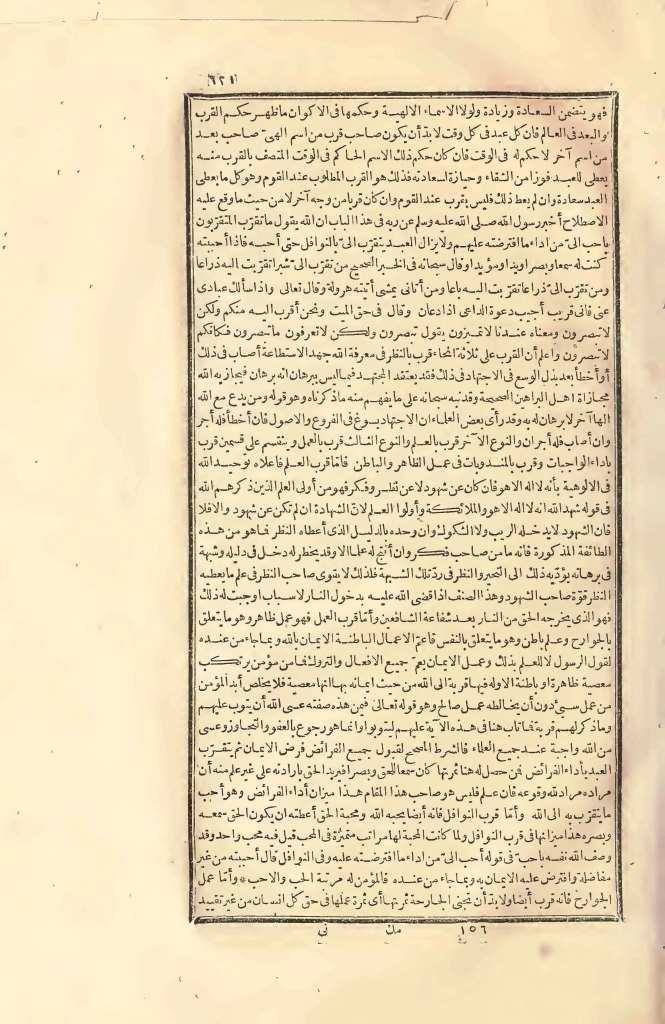 ٦٢١
فهو يتضمن السعادة وزيادة ولولا الاسماء الالهية وحكمها فى الاكوان ما ظهر حكم القرب
والبعد فى العالم فان كل عبد فى كل وقت لابد أن يكون صاحب قرب من اسم الهىّ صاحب بعد
من اسم آخر لا حكم له فى الوقت فان كان حكم ذلك الاسم الحاكم فى الوقت المتصف بالقرب منه
يعطى للعبد فوزا من الشقاء وحيازة لسعادته فذلك هو القرب المطلوب عند القوم وهو كل ما يعطى
العبد سعادة وان لم يعط ذلك فليس بقرب عند القوم وان كان قربا من وجه آخر لا من حيث ما وقع عليه
الاصطلاح أخبر رسول الله صلى الله عليه وسلم عن ربه فى هذا الباب ان الله يقول ما تقرّب المتقرّبون
بأحب الىّ من اداء ما افترضته عليهم ولا يزال العبد يتقرّب الىّ بالنوافل حتى أحبه فاذا أحببته
كنت له سمعا وبصرا ويدا ومؤيدا وقال سبحانه فى الخبر الصحيح من تقرّب الىّ شبرا تقرّبت اليه ذراعا
ومن تقرّب الىّ ذراعا تقرّبت اليه باعا ومن أتانى يمشى أتيته هرولة وقال تعالى واذا سألك عبادى
عنى فانى قريب أجيب دعوة الداعى اذا دعان وقال فى حق الميت ونحن أقرب اليه منكم ولكن
لا تبصرون ومعناه عندنا لا تميزون يقول تبصرون ولكن لا تعرفون ما تبصرون فكأنكم
لا تبصرون واعلم أن القرب على ثلاثة انحاء قرب بالنظر فى معرفة الله جهد الاستطاعة أصاب فى ذلك
أو أخطأ بعد بذل الوسع فى الاجتهاد فى ذلك فقد يعتقد المجتهد فيما ليس ببرهان انه برهان فيجازيه الله
مجازاة اهل البراهين الصحيحة وقد نبه سبحانه على ما يفهم منه ما ذكرناه وهو قوله ومن يدع مع الله
الها آخر لا برهان له به وقد رأى بعض العلماء ان الاجتهاد يسوغ فى الفروع والاصول فان أخطأ فله أجر
وان أصاب فله أجران والنوع الآخر قرب بالعلم والنوع الثالث قرب بالعمل وينقسم على قسمين قرب
بأداء الواجبات وقرب بالمندوبات فى عمل الظاهر والباطن فأما قرب العلم فأعلاه توحيد الله
فى الالوهية بأنه لا اله الا هو فان كان عن شهود لا عن نظر وفكر فهو من أولى العلم الذين ذكرهم الله
فى قوله شهد الله انه لا اله الا هو والملائكة وأولوا العلم لان الشهادة ان لم تكن عن شهود والا فلا
فان الشهود لا يدخله الريب ولا الشكوك وان وحده بالدليل الذى أعطاه النظر فما هو من هذه
الطائفة المذكورة فانه ما من صاحب فكر وان أنتج له علما الا وقد يخطر له دخل فى دليله وشبهة
فى برهانه يؤدّيه ذلك الى التحير والنظر فى ردّ تلك الشبهة فلذلك لا يقوى صاحب النظر فى علم ما يعطيه
النظر قوّة صاحب الشهود وهذا الصنف اذا قضى الله عليه بدخول النار لاسباب اوجبت له ذلك
فهو الذى يخرجه الحق من النار بعد شفاعة الشافعين وأما قرب العمل فهو عمل ظاهر وهو ما يتعلق
بالجوارح وعلم باطن وهو ما يتعلق بالنفس فأعم الاعمال الباطنة الايمان بالله وبما جاء من عنده
لقول الرسول لا للعلم بذلك وعمل الايمان يعم جميع الافعال والتروك فما من مؤمن يرتكب
معصية ظاهرة او باطنة الا وله فيها قربة الى الله من حيث ايمانه بها انها معصية فلا يخلص أبدا لمؤمن
من عمل سيئ دون أن يخالطه عمل صالح وهو قوله تعالى فيمن هذه صفته عسى الله أن يتوب عليهم
وما ذكر لهم قربة فما تاب هنا فى هذه الآية عليهم ليتوبوا وانما هو رجوع بالعفو والتجاوز وعسى
من الله واجبة عند جميع العلماء فالشرط المصحح لقبول جميع الفرائض فرض الايمان ثم يتقرّب
العبد بأداء الفرائض فمن حصل له هنا ثمرتها كان سمعا للحق وبصرا فيريد الحق بارادته على غير علم منه أن
مراده مراد لله وقوعه فان علم فليس هو صاحب هذا المقام هذا ميزان أداء الفرائض وهو أحب
ما يتقرّب به الى الله وأما قرب النوافل فانه أيضا يحبه الله ومحبة الحق أعطته ان يكون الحق سمعه
وبصره هذا ميزانها فى قرب النوافل ولما كانت المحبة لها مراتب متميزة فى المحب قيل فيه محب واحد وقد
وصف الله نفسه بأحب فى قوله أحب الىّ من اداء ما افترضته عليه وفى النوافل قال أحببته من غير
مفاضلة وافترض عليه الايمان به وبما جاء من عنده فالمؤمن له مرتبة الحب والاحب * وأما عمل
الجوارح فانه قرب أيضا ولابد أن تجنى الجارحة ثمرتها أى ثمرة عملها فى حق كل انسان من غير تقييد
١٥٦ مك نى